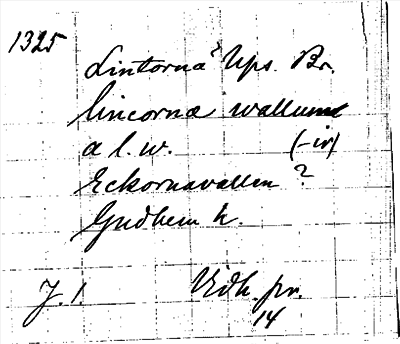 1325
Lintorna? Ups. Br.
lincornæ wallum
a l. w. (-iv)
Eckornavallen?
Gudhem h.
J. 1 Vidh. pr.
14